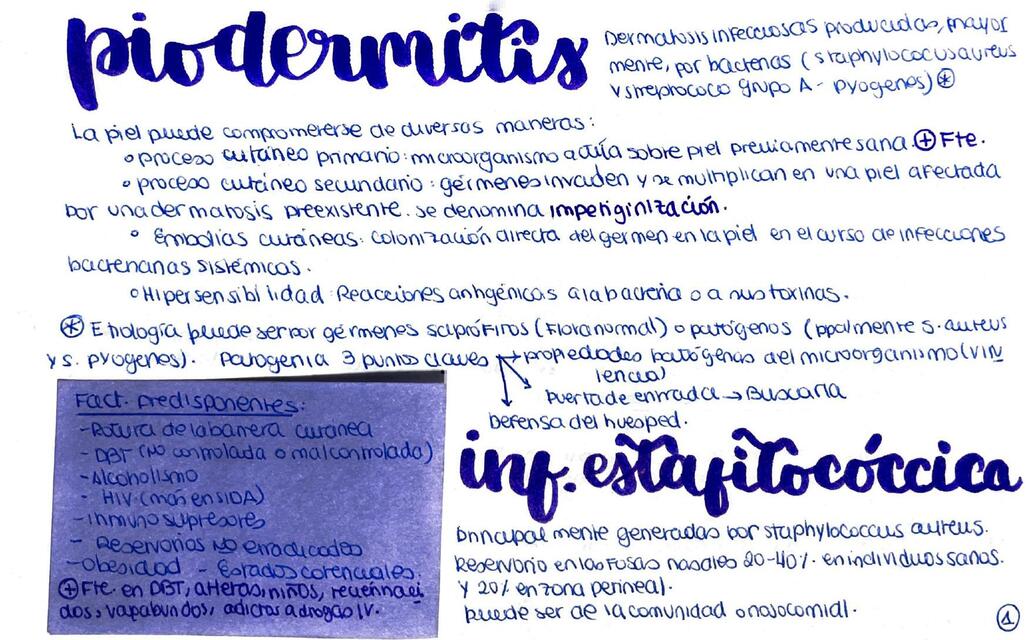 piodermitis
Dermatosis infecciosas producidas, mayor
mente, por bacterias (staphylococcus aureus
y streptococo grupo A - pyogenes) *
La piel puede comprometerse de diversas maneras:
° proceso cutáneo primario: microorganismo actúa sobre piel previamente sana. ⊕ Fte.
° proceso cutáneo secundario: gérmenes invaden y se multiplican en una piel afectada
por una dermatosis preexistente. se denomina impetiginización.
° Embolias cutáneas: colonización directa del germen en la piel en el curso de infecciones
bacterianas sistémicas.
° Hipersensibilidad: Reacciones antigénicas a la bacteria o a sus toxinas.
* Etiología puede ser por gérmenes saprófitos (Flora normal) o patógenos (ppalmente s. aureus
y s. pyogenes). Patogenia 3 puntos claves → propiedades patógenas del microorganismo (virulencia)
Puerta de entrada → Buscarla
Defensa del huesped.
Fact. predisponentes:
- Rotura de la barrera cutánea
- DBT (NO controlada o mal controlada)
- Alcoholismo
- HIV (más en SIDA)
- Inmunosupresores
- Reservorios NO erradicados
- Obesidad - Estados carenciales.
⊕ Fte en DBT, niños, recien naci
dos, vagabundos, adictos a drogas IV.
inf. estafilocóccica
Principalmente generadas por staphylococcus aureus.
Reservorio en las fosas nasales 20-40% en individuos sanos.
y 20% en zona perineal.
puede ser de la comunidad o nosocomial.
1